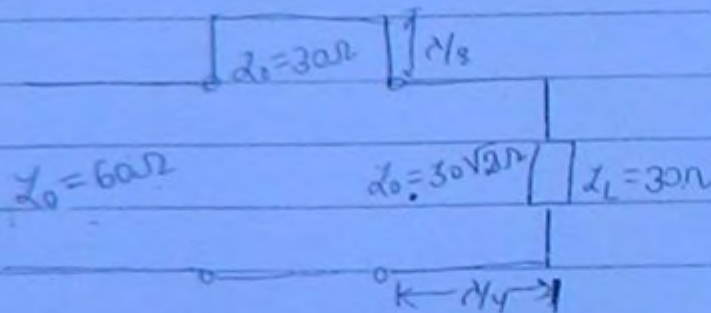 Z₀=30Ω
λ/8
Z₀=60Ω
Z₀=30√2Ω
Z_L=30Ω
λ/4